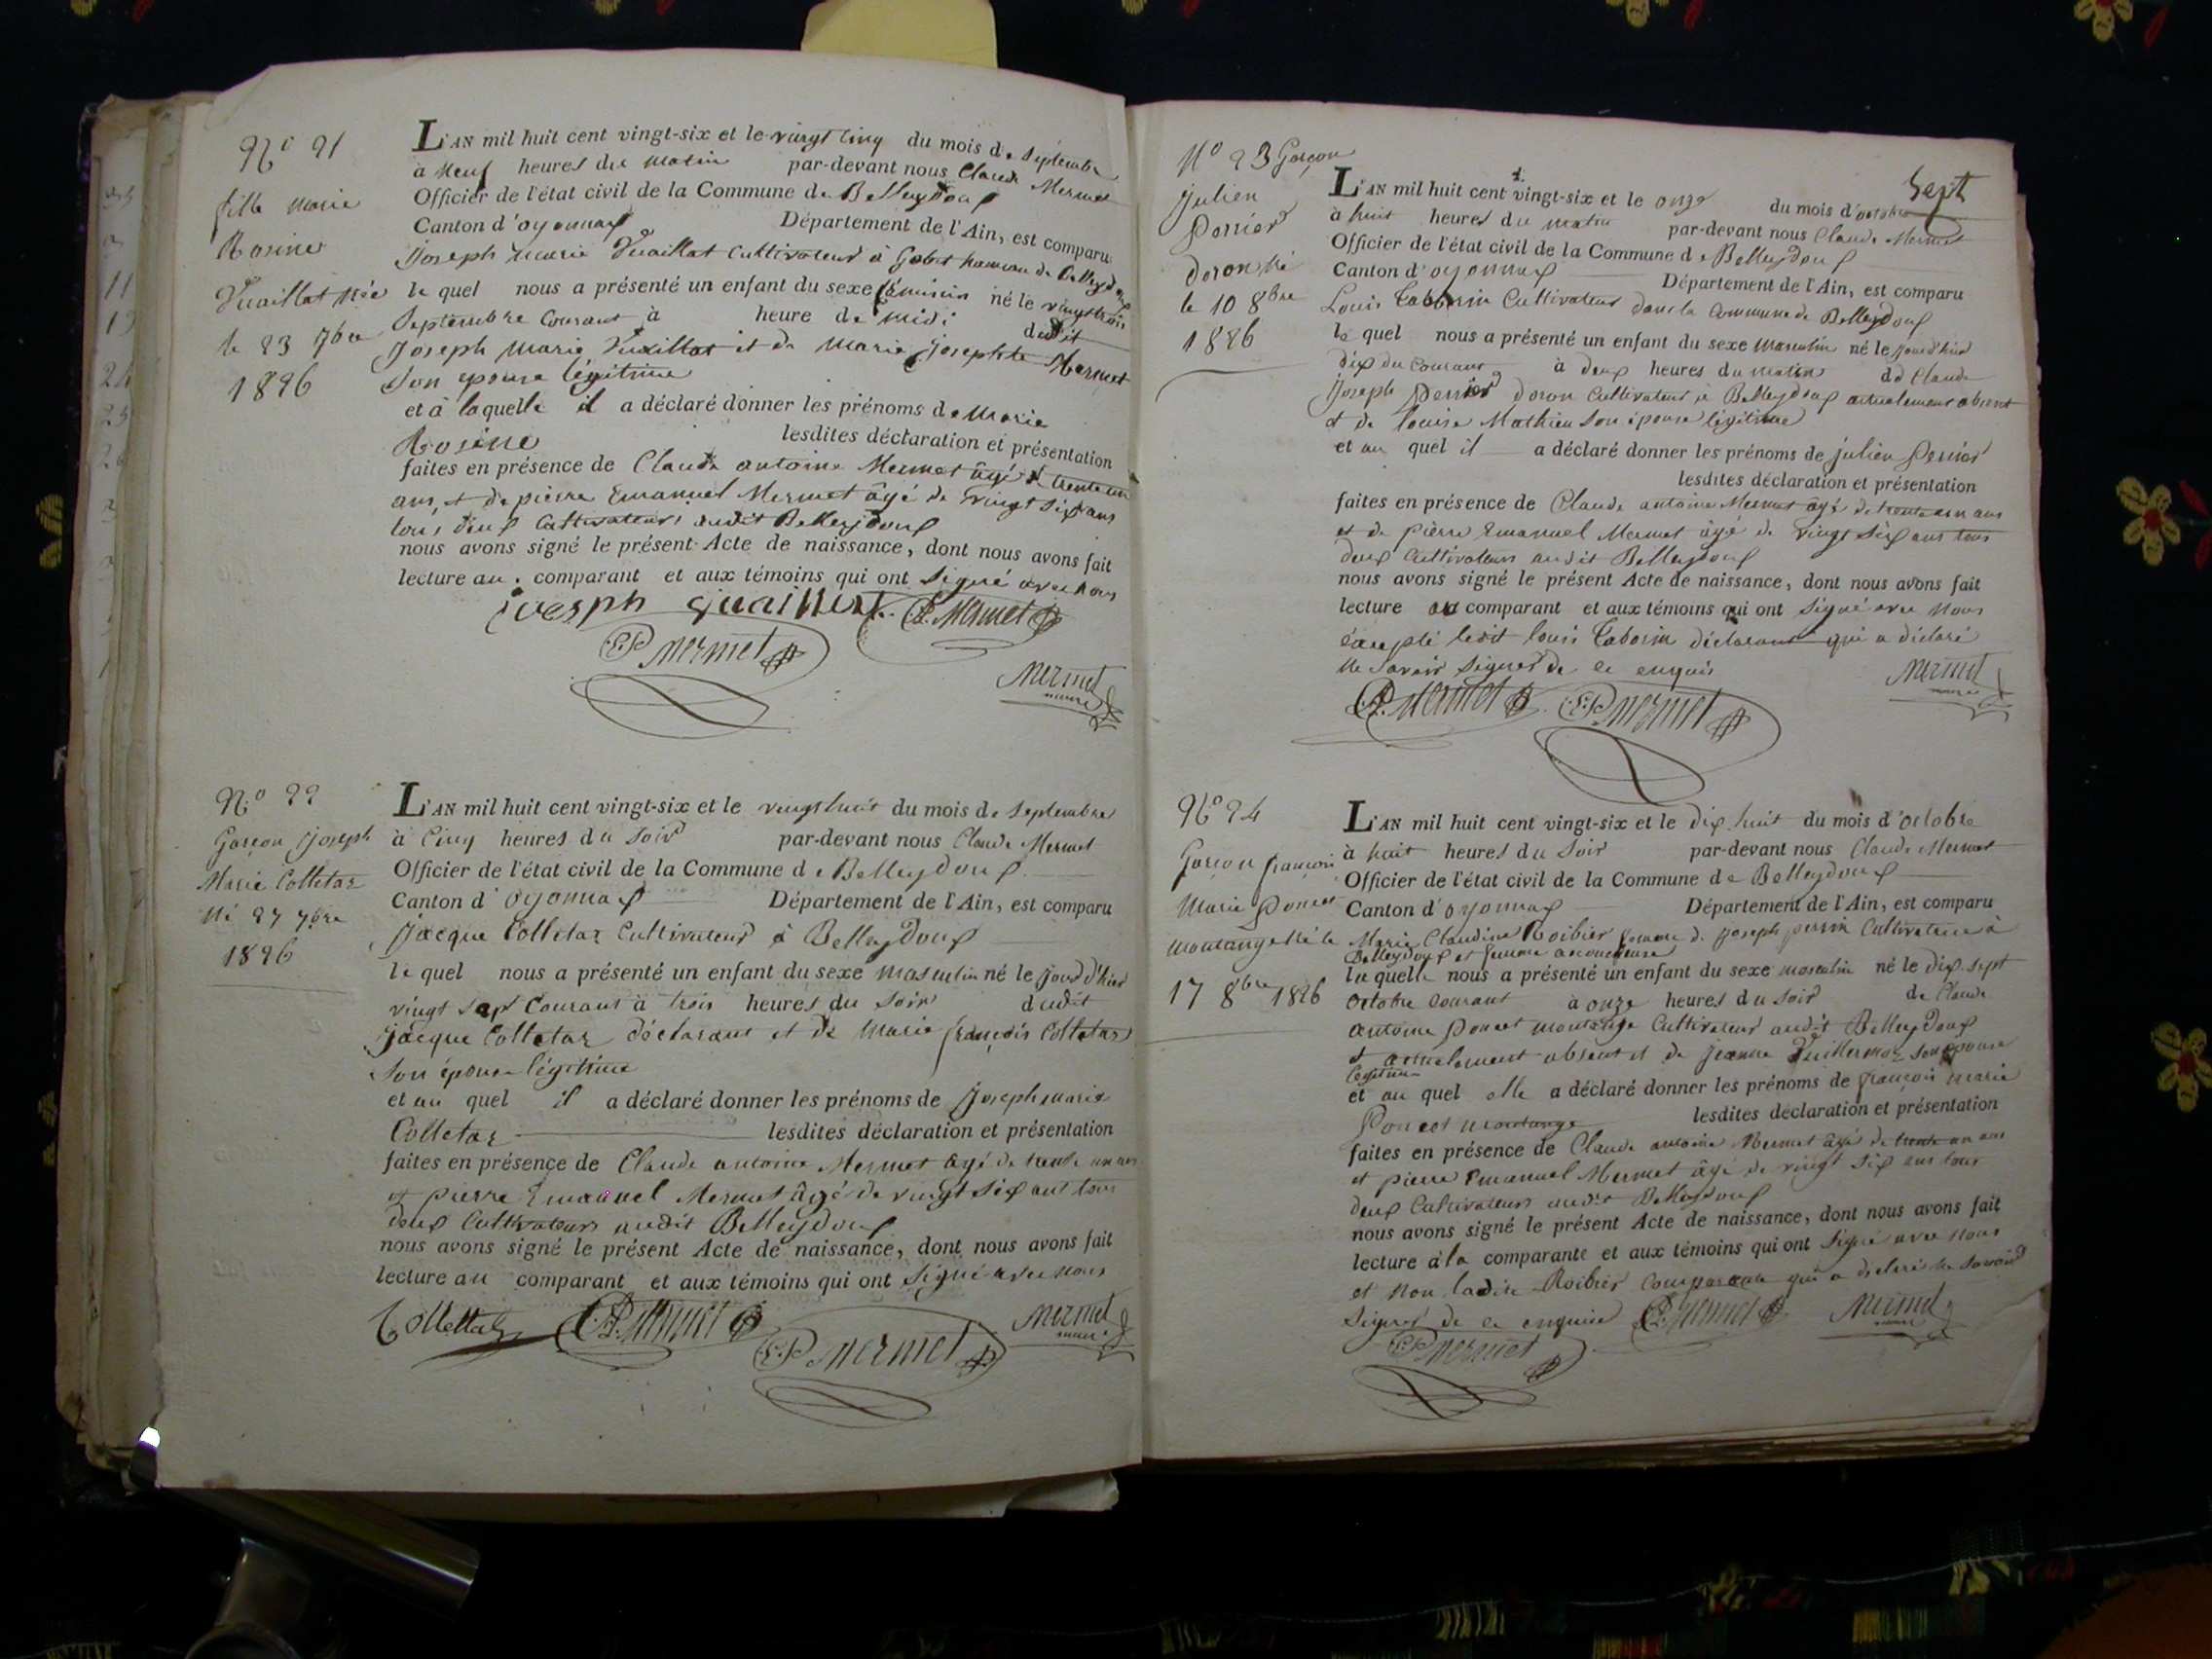 N.o 21
fille marie
Rosine
Vuaillat Née
le 23 7bre
1826
L'AN mil huit cent vingt-six et le vingt cinq du mois de septembre
à Neuf heures du matin par-devant nous Claude Mermet
Officier de l'état civil de la Commune de Belleydoux
Canton d'oyonnax Département de l'Ain, est comparu
Joseph marie Vuaillat Cultivateur à Gobet hameau de Belleydoux
le quel nous a présenté un enfant du sexe féminin né le vingt trois
Septembre Courant à heure de midi dudit
Joseph Marie Vuaillat et de Marie josephte Mermet
Son epouse légitime
et à laquelle il a déclaré donner les prénoms de Marie
Rosine lesdites déclaration et présentation
faites en présence de Claude antoine Mermet âgé de trente un
ans, et de pierre Emanuel Mermet âgé de vingt six ans
tous deux Cultivateurs audit Belleydoux
nous avons signé le présent Acte de naissance, dont nous avons fait
lecture au comparant et aux témoins qui ont Signé avec nous
joesph C.A. Mermet
E.P. mermet
Mermet
maire
N.o 22
Garçon Joseph
Marie Colletaz
Né 27 7bre
1826
L'AN mil huit cent vingt-six et le vingt huit du mois de Septembre
à Cinq heures du Soir par-devant nous Claude Mermet
Officier de l'état civil de la Commune de Belleydoux
Canton d'Oyonnax Département de l'Ain, est comparu
Jacque Colletaz Cultivateur à Belleydoux
le quel nous a présenté un enfant du sexe masculin né le jourd'hier
vingt sept Courant à trois heures du Soir dudit
Jacque Colletaz déclarant et de Marie françois Colletaz
Son épouse légitime
et au quel il a déclaré donner les prénoms de Joseph marie
Colletaz lesdites déclaration et présentation
faites en présence de Claude antoine Mermet âgé de trente un ans
et pierre Emanuel Mermet âgé de vingt Six ans tous
deux Cultivateurs audit Belleydoux
nous avons signé le présent Acte de naissance, dont nous avons fait
lecture au comparant et aux témoins qui ont Signé avec nous
Collettaz C.A. Mermet E.P. mermet Mermet
maire
Sept
N.o 23 Garçon
julien
Perrier
doron Né
le 10 8bre
1826
L'AN mil huit cent vingt-six et le onze du mois d'octobre
à huit heures du matin par-devant nous Claude Mermet
Officier de l'état civil de la Commune de Belleydoux
Canton d'oyonnax Département de l'Ain, est comparu
Louis Taborin Cultivateur dans la Commune de Belleydoux
le quel nous a présenté un enfant du sexe masculin né le jourd'hier
dix du Courant à deux heures du matin de Claude
Joseph perrier doron Cultivateur à Belleydoux actuelement absent
et de louise Mathieu son épouse légitime
et au quel il a déclaré donner les prénoms de julien Perrier
lesdites déclaration et présentation
faites en présence de Claude antoine Mermet âgé de trente un ans
et de pierre Emanuel Mermet âgé de vingt Six ans tous
deux Cultivateurs audit Belleydoux
nous avons signé le présent Acte de naissance, dont nous avons fait
lecture au comparant et aux témoins qui ont Signé avec Nous
éxcepté ledit louis Taborin déclarant qui a déclaré
ne savoir Signer de ce enquis
C.A. Mermet E.P. mermet Mermet
maire
N.o 24
Garçon françois
Marie Poncet
montange Né le
17 8bre 1826
L'AN mil huit cent vingt-six et le dix huit du mois d'octobre
à huit heures du Soir par-devant nous Claude Mermet
Officier de l'état civil de la Commune de Belleydoux
Canton d'oyonnax Département de l'Ain, est comparu
Marie Claudine Roibier femme de Joseph perrin Cultivatrice à
Belleydoux et femme accoucheuse
la quelle nous a présenté un enfant du sexe masculin né le dix sept
octobre courant à onze heures du soir de Claude
antoine Poncet montange Cultivateur audit Belleydoux
et actuelement absent et de jeanne Vuillermoz son épouse
légitime
et au quel elle a déclaré donner les prénoms de françois marie
Poncet montange lesdites déclaration et présentation
faites en présence de Claude antoine Mermet âgé de trente un ans
et pierre Emanuel Mermet âgé de vingt Six ans tous
deux Cultivateurs audit Belleydoux
nous avons signé le présent Acte de naissance, dont nous avons fait
lecture à la comparante et aux témoins qui ont Signé avec nous
et Non ladite Roibier Comparante qui a déclaré ne Savoir
Signer de ce enquise C.A. Mermet Mermet
maire
E.P. mermet